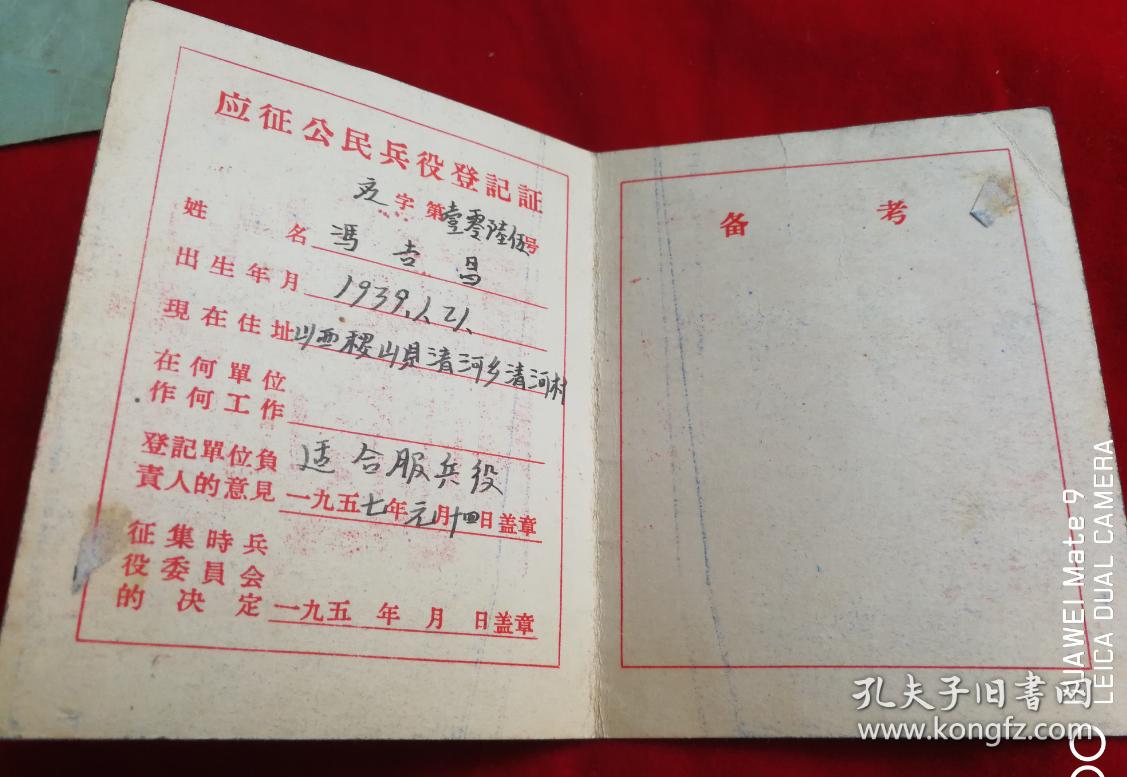 应征公民兵役登記証
字第壹零陸伍号
姓名 馮吉昌
出生年月 1939.1.21.
現在住址 山西稷山县清河乡清河村
在何單位
作何工作
登記單位負 适合服兵役
責人的意見 一九五七年元月十四日盖章
征集時兵
役委員会
的决定 一九五 年 月 日盖章
备考
孔夫子旧書网
www.kongfz.com
HUAWEI Mate 9
LEICA DUAL CAMERA